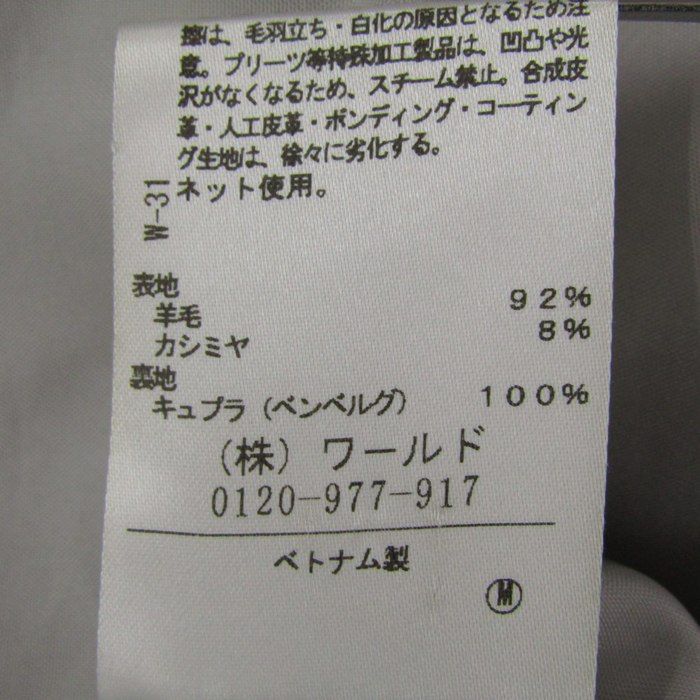 擦は、毛羽立ち・白化の原因となるため注
意。プリーツ等特殊加工製品は、凹凸や光
沢がなくなるため、スチーム禁止。合成皮
革・人工皮革・ボンディング・コーティン
グ生地は、徐々に劣化する。
ネット使用。
W-31
表地
羊毛 92%
カシミヤ 8%
裏地
キュプラ(ベンベルグ) 100%
(株)ワールド
0120-977-917
ベトナム製
M